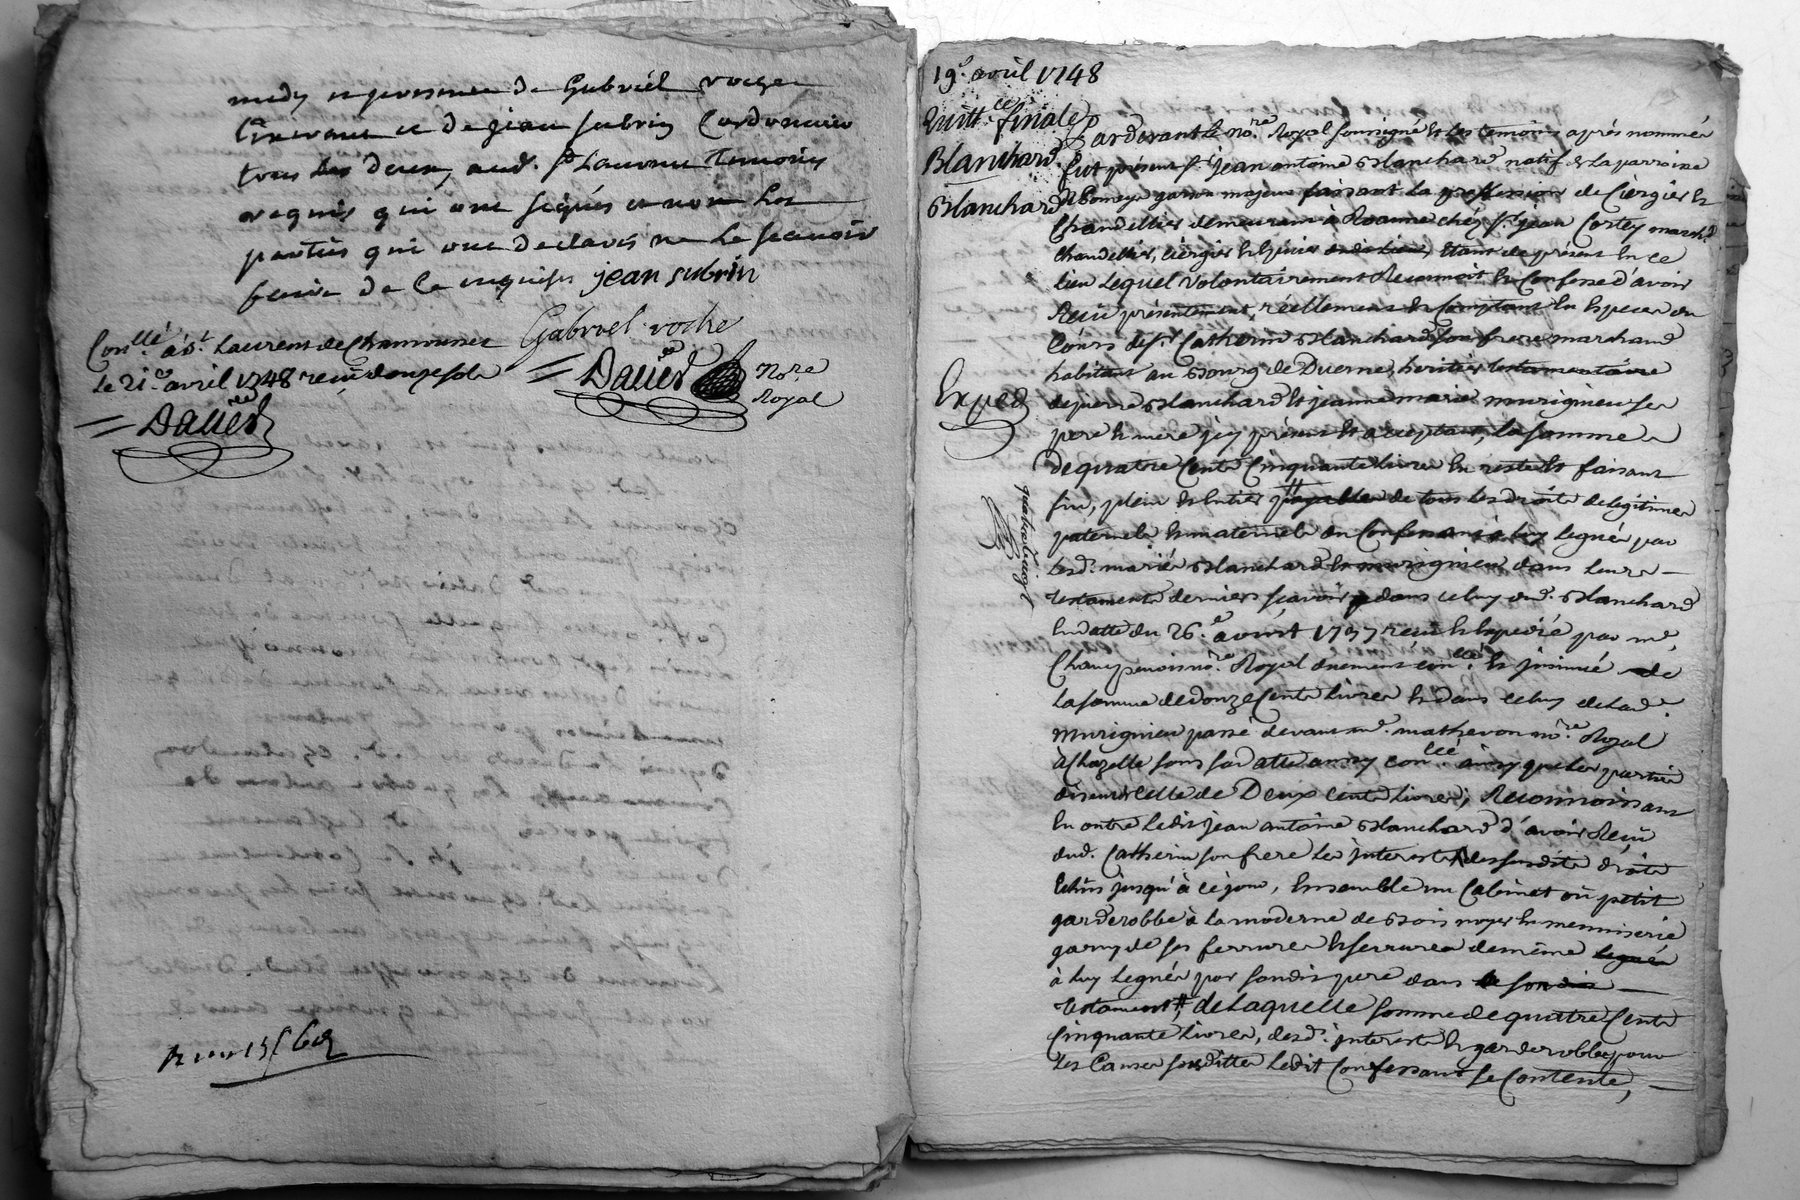 midy en presence de Gabriel roche
et de jean subrin Cordonnier
tous les deux aud. St Laurent temoins
requis qui ont signés et non les
parties qui ont declarés ne le scavoir
faire de ce enquises jean subrin
Gabriel roche
Conllé. à St. Laurens de Chamousset
le 21e. avril 1748 reçu douze sols
Dauer
Nore.
Royal
19e. avril 1748
Quittce. finale
Blanchard
Blanchard
Exped
Pardevant le nore. Royal soussigné et les temoins après nommés
fut présent sr. jean antoine Blanchard natif de la parroisse
de Pomeys garçon majeur faisant la proffession de Ciergier et
Chandellier demeurant à Roanne chés sr. jean Cortey marchd.
chandellier, ciergier et Epicier, Etant de présent en ce
lieu Lequel volontairement Reconnoit et Confesse d'avoir
Reçu présentement, réellement et Comptant En Especes du
Cours de sr. Catherin Blanchard son frere marchand
habitant au Bourg de Duerne, heritier testamentaire
de pierre Blanchard Et jeanne marie murigneu ses
pere et mere icy présent et acceptant, la somme
de quatre Cents Cinquante livres En reste Et faisant
fin, plein et Entier payable de tous les droits de légitimes
paternels et maternels du Confessant à luy legués par
lesd. mariés Blanchard et murignieu dans leurs
testaments derniers scavoir dans celuy dud. Blanchard
En datte du 26e. avril 1737 reçu et Expedié par me.
Champenois nore. Royal duement conllé. et jnsinué de
la somme de douze Cents livres et dans celuy de lad.
murignieu passé devant me. mathevon nore. Royal
à Chazelle sous sa datte aussy conllé. ainsy que les parties
disent Celle de Deux cents livres; Reconnoissant
En outre ledit jean antoine Blanchard d'avoir Reçu
dud. Catherin son frere les jnterests des susdits droits
Echus jusqu'à ce jour, Ensemble un Cabinet ou petit
garderobbe à la moderne de Bois noyer En mennuiserie
garny de ses ferrures et serrures de même legués
à luy legués par sondit pere dans le sondit
testament, de laquelle somme de quatre Cents
Cinquante livres, desd. jnterests et garderobbe pour
les Causes susditte Ledit Confessant se Contente,